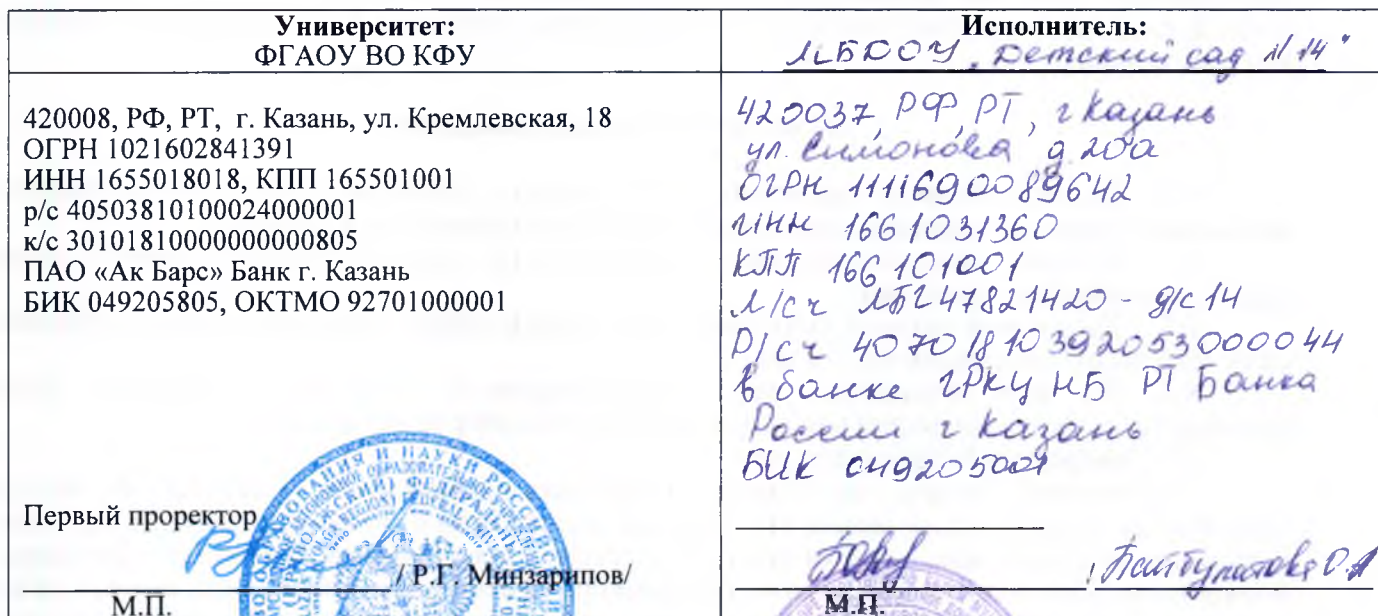 Университет:
ФГАОУ ВО КФУ
420008, РФ, РТ, г. Казань, ул. Кремлевская, 18
ОГРН 1021602841391
ИНН 1655018018, КПП 165501001
р/с 40503810100024000001
к/с 30101810000000000805
ПАО «Ак Барс» Банк г. Казань
БИК 049205805, ОКТМО 92701000001
Первый проректор
/ Р.Г. Минзарипов/
М.П.
Исполнитель:
МБДОУ „Детский сад №14"
420037, РФ, РТ, г Казань
ул. Симонова д. 20а
ОГРН 1111690089642
ИНН 1661031360
КПП 166101001
Л/сч ЛБГ47821420 - д/с 14
Р/сч 40701810392053000044
в банке ГРКЦ НБ РТ Банка
России г Казань
БИК 049205001
/ Байбулатова О.А
М.П.